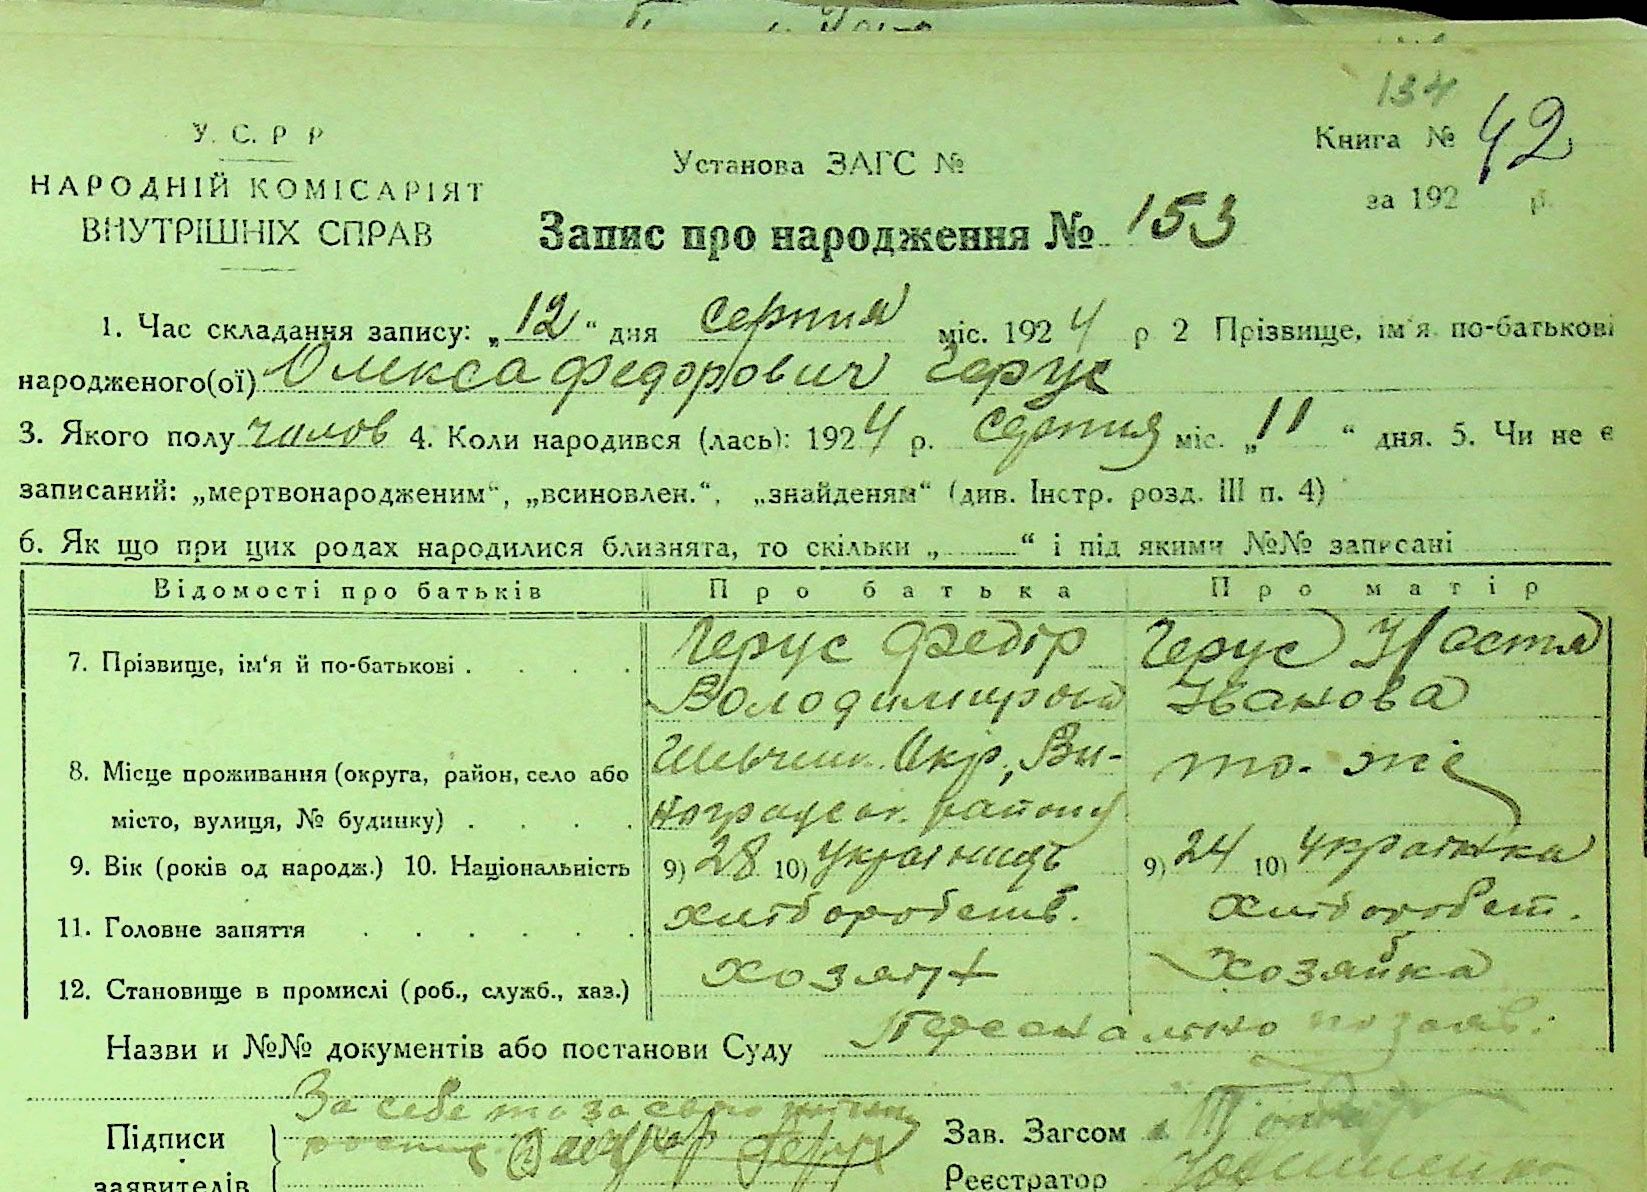 134
У. С. Р Р
НАРОДНІЙ КОМІСАРІЯТ
ВНУТРІШНІХ СПРАВ
Установа ЗАГС №
Книга № 42
за 192 р.
Запис про народження № 153
1. Час складання запису: „12“ дня серпня міс. 1924 р 2 Прізвище, ім'я по-батькові
народженого(ої) Олекса Федорович Герус
3. Якого полу чолов 4. Коли народився (лась): 1924 р. Серпня міс. „11“ дня. 5. Чи не є
записаний: „мертвонародженим“, „всиновлен.“, „знайденям“ (див. Інстр. розд. III п. 4)
6. Як що при цих родах народилися близнята, то скільки „ “ і під якими №№ записані
Відомості про батьків Про батька Про матір
7. Прізвище, ім'я й по-батькові . . . . Герус Федір Герус Настя
Володимиров Іванова
8. Місце проживання (округа, район, село або Окр., Ви- то-же
місто, вулиця, № будинку) . . . . ноградськ. району
9. Вік (років од народж.) 10. Національність 9) 28 10) Українець 9) 24 10) Українка
11. Головне заняття . . . . . . хлібороб хлібороб
12. Становище в промислі (роб., служб., хаз.) хозяїн Хозяйка
Назви и №№ документів або постанови Суду Персонально по заяв.
За себе та за свою
Підписи Зав. Загсом
заявителів Федір Герус Реєстратор